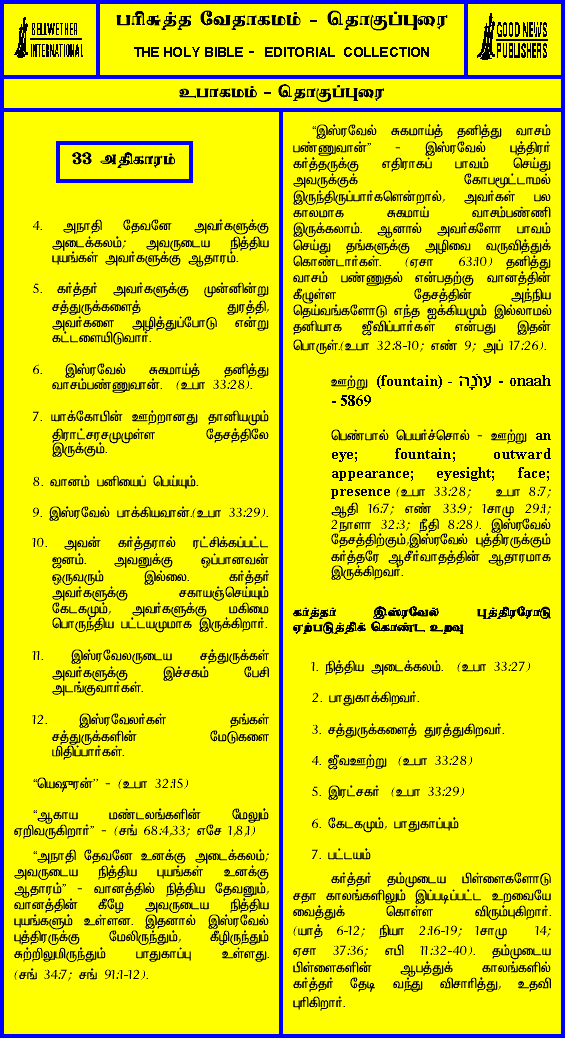 BELLWETHER
INTERNATIONAL
பரிசுத்த வேதாகமம் - தொகுப்புரை
THE HOLY BIBLE - EDITORIAL COLLECTION
GOOD NEWS
PUBLISHERS
உபாகமம் - தொகுப்புரை
33 அதிகாரம்
4. அநாதி தேவனே அவர்களுக்கு
அடைக்கலம்; அவருடைய நித்திய
புயங்கள் அவர்களுக்கு ஆதாரம்.
5. கர்த்தர் அவர்களுக்கு முன்னின்று
சத்துருக்களைத் துரத்தி,
அவர்களை அழித்துப்போடு என்று
கட்டளையிடுவார்.
6. இஸ்ரவேல் சுகமாய்த் தனித்து
வாசம்பண்ணுவான். (உபா 33:28).
7. யாக்கோபின் ஊற்றானது தானியமும்
திராட்சரசமுமுள்ள தேசத்திலே
இருக்கும்.
8. வானம் பனியைப் பெய்யும்.
9. இஸ்ரவேல் பாக்கியவான்.(உபா 33:29).
10. அவன் கர்த்தரால் ரட்சிக்கப்பட்ட
ஜனம். அவனுக்கு ஒப்பானவன்
ஒருவரும் இல்லை. கர்த்தர்
அவர்களுக்கு சகாயஞ்செய்யும்
கேடகமும், அவர்களுக்கு மகிமை
பொருந்திய பட்டயமுமாக இருக்கிறார்.
11. இஸ்ரவேலருடைய சத்துருக்கள்
அவர்களுக்கு இச்சகம் பேசி
அடங்குவார்கள்.
12. இஸ்ரவேலர்கள் தங்கள்
சத்துருக்களின் மேடுகளை
மிதிப்பார்கள்.
“யெஷுரன்” - (உபா 32:15)
“ஆகாய மண்டலங்களின் மேலும்
ஏறிவருகிறார்” - (சங் 68:4,33; எசே 1,8,1)
“அநாதி தேவனே உனக்கு அடைக்கலம்;
அவருடைய நித்திய புயங்கள் உனக்கு
ஆதாரம்” - வானத்தில் நித்திய தேவனும்,
வானத்தின் கீழே அவருடைய நித்திய
புயங்களும் உள்ளன. இதனால் இஸ்ரவேல்
புத்திரருக்கு மேலிருந்தும், கீழிருந்தும்
சுற்றிலுமிருந்தும் பாதுகாப்பு உள்ளது.
(சங் 34:7; சங் 91:1-12).
“இஸ்ரவேல் சுகமாய்த் தனித்து வாசம்
பண்ணுவான்” - இஸ்ரவேல் புத்திரர்
கர்த்தருக்கு எதிராகப் பாவம் செய்து
அவருக்குக் கோபமூட்டாமல்
இருந்திருப்பார்களென்றால், அவர்கள் பல
காலமாக சுகமாய் வாசம்பண்ணி
இருக்கலாம். ஆனால் அவர்களோ பாவம்
செய்து தங்களுக்கு அழிவை வருவித்துக்
கொண்டார்கள். (ஏசா 63:10) தனித்து
வாசம் பண்ணுதல் என்பதற்கு வானத்தின்
கீழுள்ள தேசத்தின் அந்நிய
தெய்வங்களோடு எந்த ஐக்கியமும் இல்லாமல்
தனியாக ஜீவிப்பார்கள் என்பது இதன்
பொருள்.(உபா 32:8-10; எண் 9; அப் 17:26).
ஊற்று (fountain) - עוֹנָה - onaah
- 5869
பெண்பால் பெயர்ச்சொல் - ஊற்று an
eye; fountain; outward
appearance; eyesight; face;
presence (உபா 33:28; உபா 8:7;
ஆதி 16:7; எண் 33:9; 1சாமு 29:1;
2நாளா 32:3; நீதி 8:28). இஸ்ரவேல்
தேசத்திற்கும்,இஸ்ரவேல் புத்திரருக்கும்
கர்த்தரே ஆசீர்வாதத்தின் ஆதாரமாக
இருக்கிறவர்.
கர்த்தர் இஸ்ரவேல் புத்திரரோடு
ஏற்படுத்திக் கொண்ட உறவு
1. நித்திய அடைக்கலம். (உபா 33:27)
2. பாதுகாக்கிறவர்.
3. சத்துருக்களைத் துரத்துகிறவர்.
4. ஜீவஊற்று (உபா 33:28)
5. இரட்சகர் (உபா 33:29)
6. கேடகமும், பாதுகாப்பும்
7. பட்டயம்
கர்த்தர் தம்முடைய பிள்ளைகளோடு
சதா காலங்களிலும் இப்படிப்பட்ட உறவையே
வைத்துக் கொள்ள விரும்புகிறார்.
(யாத் 6-12; நியா 2:16-19; 1சாமு 14;
ஏசா 37:36; எபி 11:32-40). தம்முடைய
பிள்ளைகளின் ஆபத்துக் காலங்களில்
கர்த்தர் தேடி வந்து விசாரித்து, உதவி
புரிகிறார்.